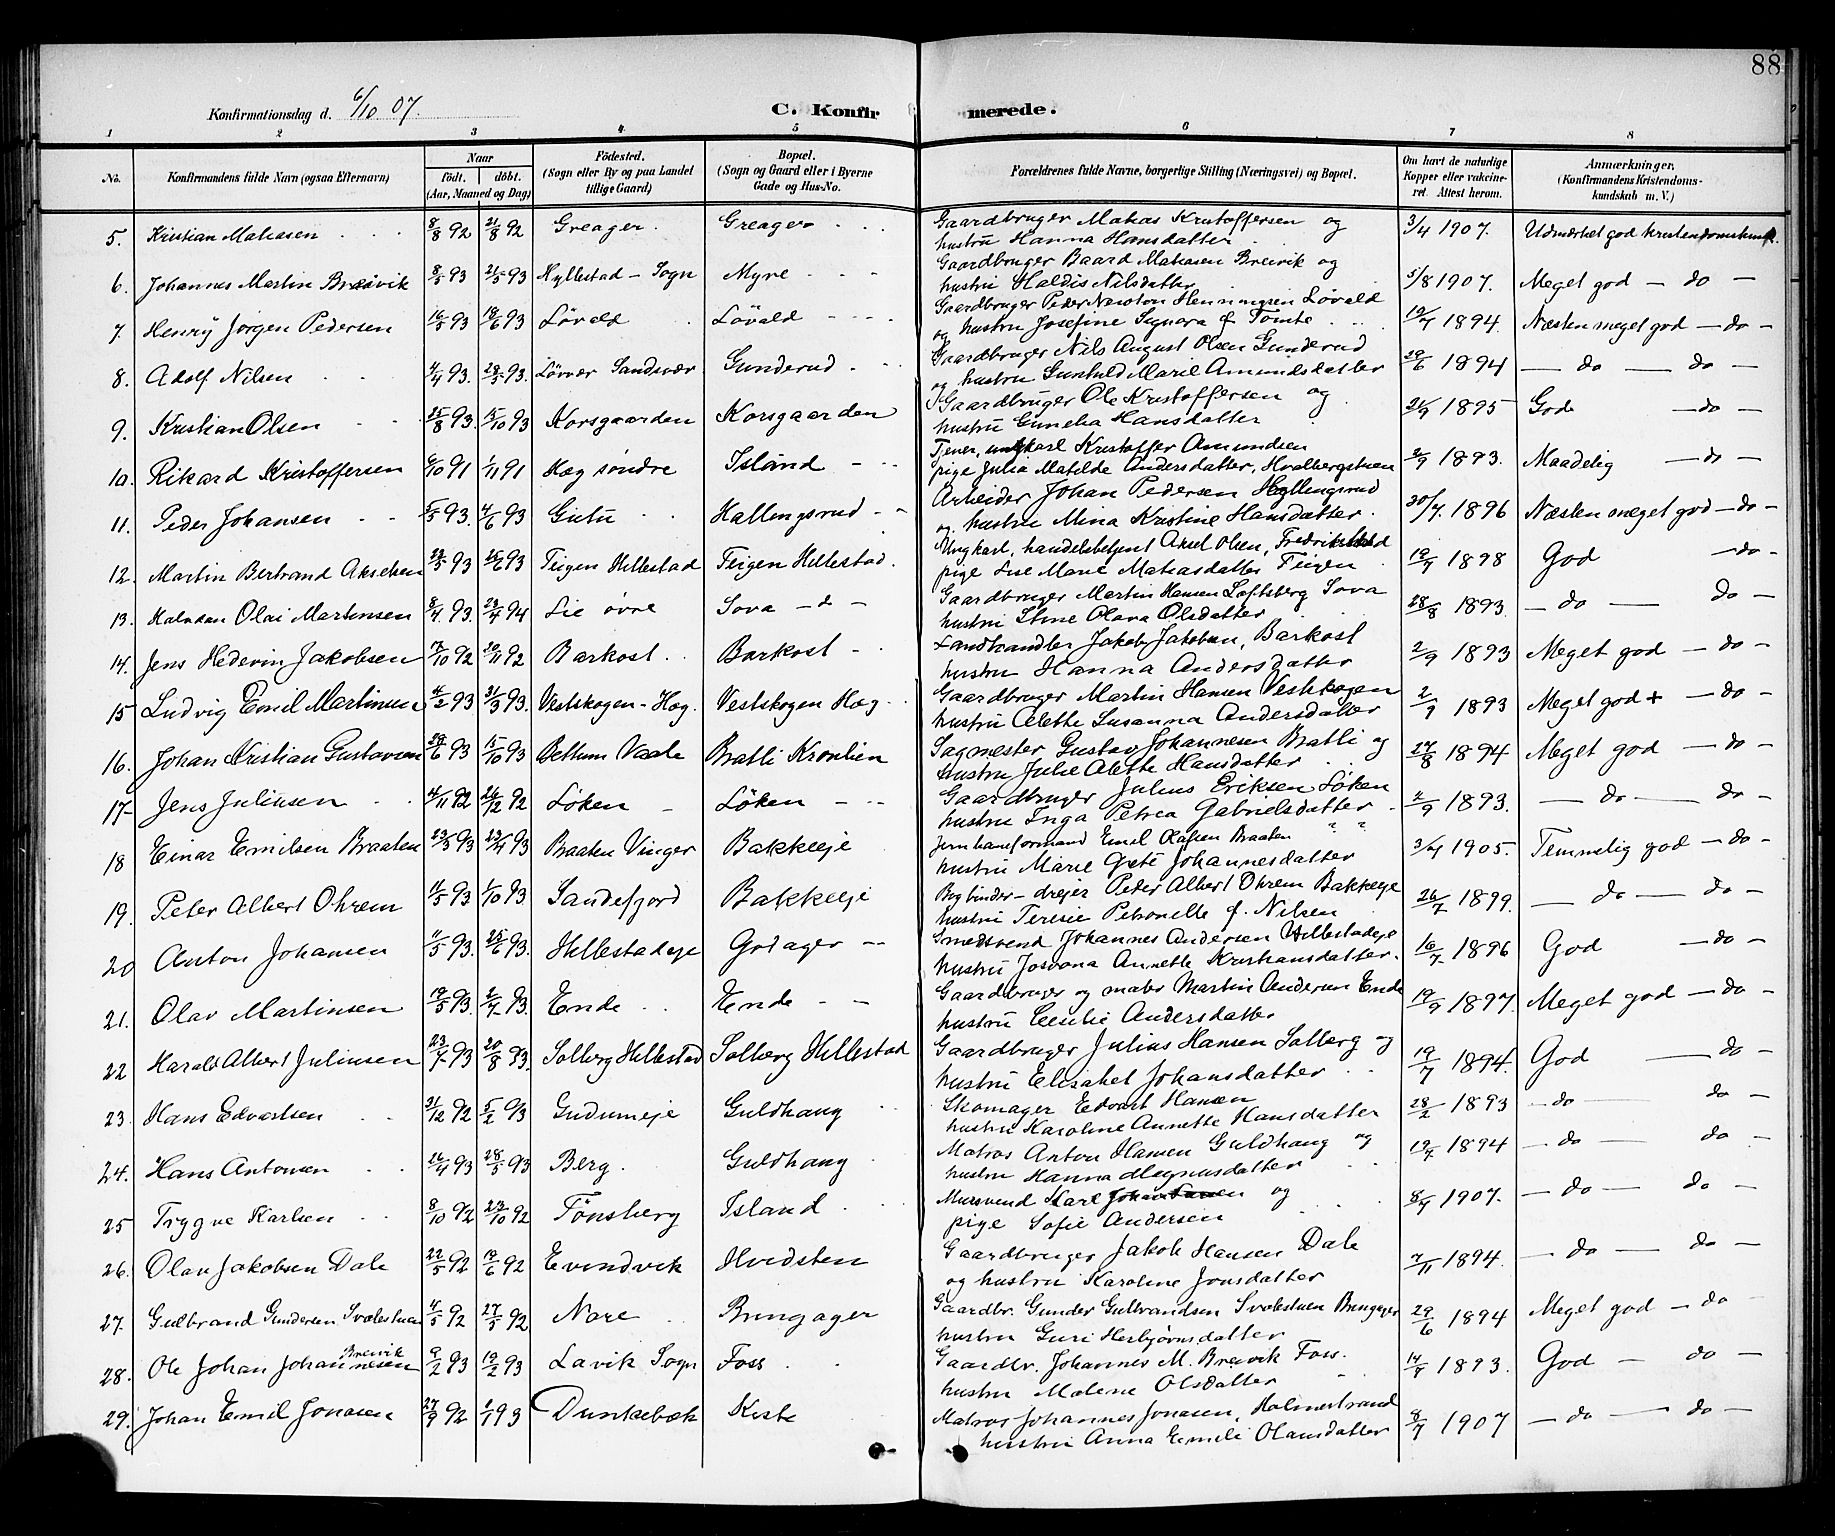 88
Konfirmationsdag d. 6/10 07.
C. Konfirmerede.
1 2 3 4 5 6 7 8
No. Konfirmandens fulde Navn (ogsaa Efternavn) Naar født. døbt. (Aar, Maaned og Dag) Fødested. (Sogn eller By og paa Landet tillige Gaard) Bopæl. (Sogn og Gaard eller i Byerne Gade og Hus-No. Forældrenes fulde Navne, borgerlige Stilling (Næringsvei) og Bopæl. Om havt de naturlige Kopper eller vakcineret. Attest herom. Anmærkninger, (Konfirmandens Kristendomskundskab m. V.)
5. Kristian Matiasen 8/8 92 21/8 92 Greager. Greager Gaardbruger Matias Kristoffersen og 3/4 1907. Udmærket god kristendomskunsk.
hustru Hanna Hansdatter
6. Johannes Martin Breivik 8/5 93 21/5 93 Hyllestad - Sogn Myre Gaardbruger Baard Matiasen Breivik og 5/8 1907. Meget god — do —
hustru Haldis Nilsdatter
7. Henry Jørgen Pedersen 16/5 93 18/6 93 Løvald Løvald Gaardbruger Peder Newton Henningsen Løvald 19/7 1894. Næsten meget god — do —
og hustru Josefine Signora f. Tomte
8. Adolf Nilsen 4/4 93. 28/5 93. Løvver Sandsvær Gunderud Gaardbruger Nils August Olsen Gunderud 29/6 1894 — do — do —
og hustru Gunhild Marie Amundsdatter
9. Kristian Olsen 25/8 93. 15/10 93 Korsgaarden Korsgaarden Gaardbruger Ole Kristoffersen og 21/9 1895 Gode — do —
hustru Gunelia Hansdatter
10. Rikard Kristoffersen 6/10 91 1/11 91 Hæg søndre Island Tjener, ungkarl Kristoffer Amundsen 2/9 1893. Maadelig — do —
pige Julia Matilde Andersdatter, Hvalbergstuen
11. Peder Johansen 5/5 93. 4/6 93 Gutu Hallingsrud Arbeider Johan Pedersen Hallingsrud 30/7. 1896 Næsten meget god — do —
og hustru Mina Kristine Hansdatter.
12. Martin Bertrand Akselsen 93 93 Teigen Hillestad Teigen Hillestad. Ungkarl, handelsbetjent Aksel Olsen, Fredrikstad 19/7 1898 God — do —
pige Lise Marie Matiasdatter Teigen
13. Halvdan Olai Martinsen 8/4 93. 23/4 94 Lie øvre Sova Gaardbruger Martin Hansen Loftsberg Sova 28/8 1893. — do — do —
hustru Stine Olava Olsdatter
14. Jens Hedevin Jakobsen 17/10 92 20/11 92 Barkost Barkost Landhandler Jakob Jakobsen, Barkost 2/9 1893 Meget god — do —
hustru Hanna Andersdatter
15 Ludvig Emil Martinsen 11/2 93 31/3 93. Vestskogen - Hæg. Vestskogen Hæg Gaardbruger Martin Hansen Vestskogen 2/9 1893 Meget god + — do —
hustru Alette Susanna Andersdatter
16. Johan Kristian Gustavsen 29/6 93 15/10 93 Bettum Vaale Bratli Kronlien Sagmester Gustav Johannesen Bratli og 27/8 1894 Meget god — do —
hustru Julie Alette Hansdatter
17 Jens Juliusen 4/11 92 26/12 92 Løken Løken Gaardbruger Julius Eriksen Løken 2/9 1893. — do — do —
hustru Inga Petrea Gabrielsdatter
18 Einar Emilsen Braaten 23/3 93 23/4 93 Braaten Vinger Bakkeeje Jernbaneformand Emil Olafsen Braaten 3/4 1905. Temmelig god — do —
hustru Marie Grete Johannesdatter
19. Peter Albert Ohrem 11/5 93 1/10 93 Sandefjord Bakkeeje drejer Peter Albert Ohrem Bakkeeje 26/7 1899. — do — do —
hustru Teresie Petronelle f. Nilsen
20 Anton Johansen 11/5 93. 25/6 93. Hillestadeje Godager Smedsvend Johannes Andersen Hillestadeje 16/7 1896 God — do —
hustru Josvana Annette Kristiansdatter.
21. Olav Martinsen 19/5 93. 2/7 93. Ende Ende Gaardbruger og maler Martin Andersen Ende 19/9 1897. Meget god — do —
hustru Cecilie Andersdatter
22 Harald Albert Juliusen 23/7 93 20/8 93. Solberg Hillestad Solberg Hillestad Gaardbruger Julius Hansen Solberg og 19/7 1894. God — do —
hustru Elisabet Johansdatter
23. Hans Edvartsen 31/12 92 5/2 93 Gudumeje Guldhaug Skomager Edvart Hansen 28/2 1893 — do — do —
hustru Karoline Annette Hansdatter
24. Hans Antonsen 16/4 93 28/5 93 Berg. Guldhaug Matros Anton Hansen Guldhaug og 19/7 1894 — do — do —
hustru Hanna Magnusdatter
25 Trygve Karlsen 8/10 92 92 Tønsberg Island Mursvend Karl og 8/7 1907. — do — do —
pige Sofie Andersen
26. Olav Jakobsen Dale 22/5 92 19/6 92 Evindvik Hvidsten Gaardbruger Jakob Hansen Dale 7/11 1894. — do — do —
og hustru Karoline Jonsdatter
27. Gulbrand Gundersen Svalestuen 4/5 92 27/5 92 Nore Brengager Gaardbr. Gunder Gulbrandsen Svalestuen Brengager 29/6 1894 Meget god — do —
hustru Guri Herbjørnsdatter
28. Ole Johan Johannesen Breivik 9/2 93 19/2 93 Lavik Sogn Foss Gaardbr. Johannes M. Breivik Foss. 14/9 1893. God — do —
hustru Malene Olsdatter
29. Johan Emil Jonasen 27/9 92 1/1 93 Dunkebæk Keste Matros Johannes Jonasen, Holmestrand 8/7 1907 — do — do —
hustru Anna Emilie Olausdatter